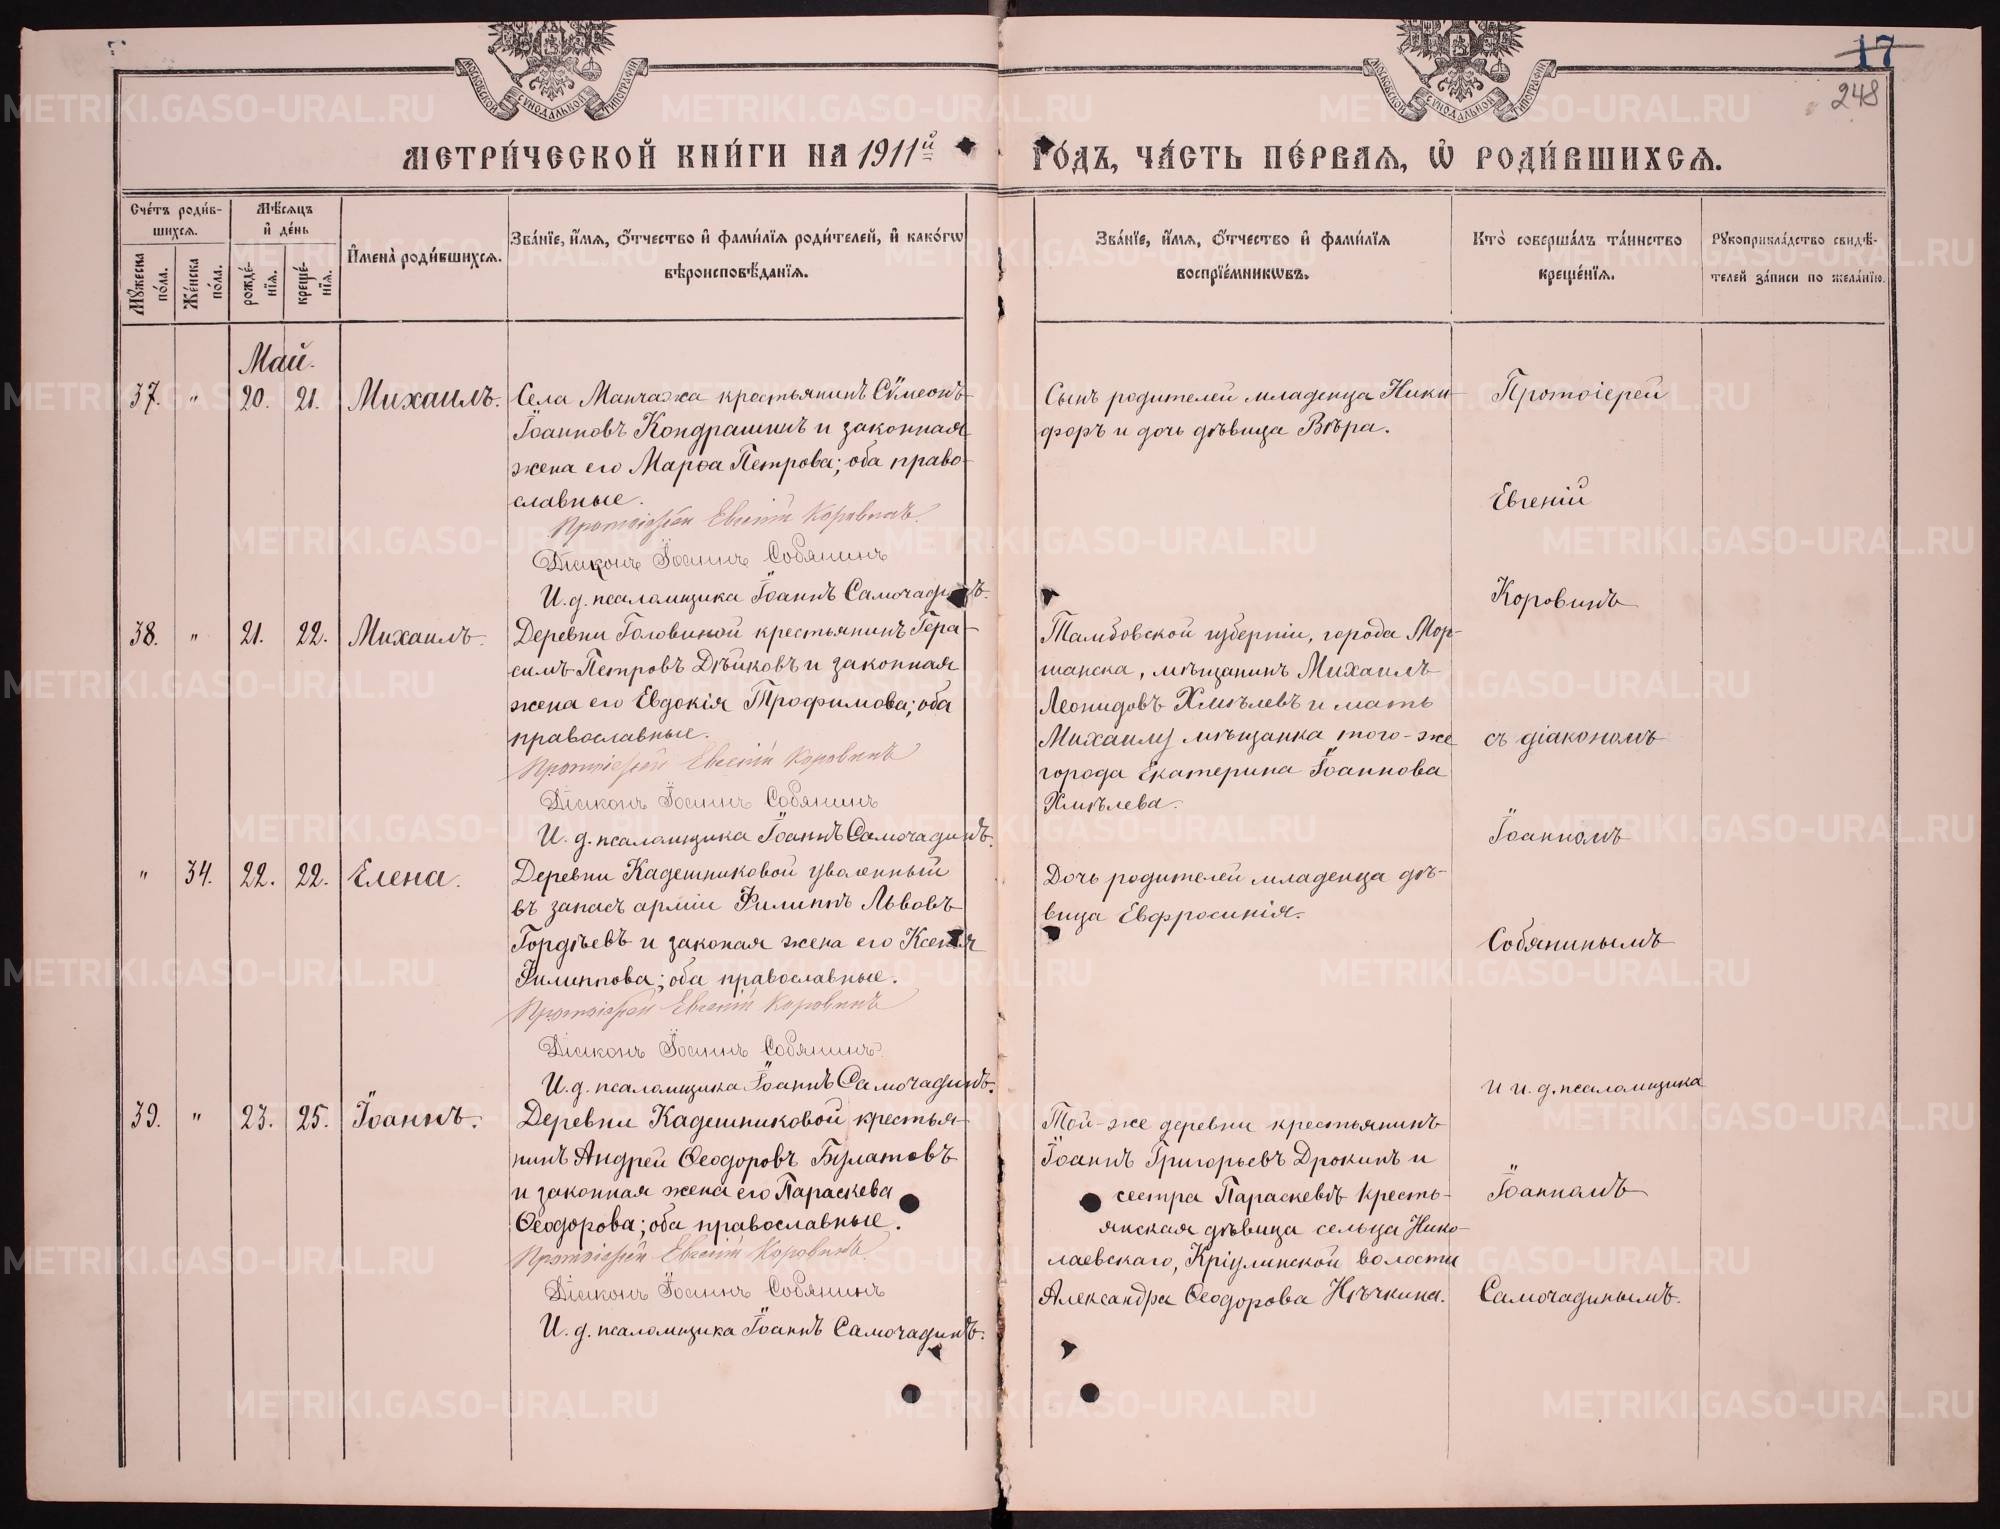 МОСКОВСКОЙ СѴНОДАЛЬНОЙ ТИПОГРАФІИ
МОСКОВСКОЙ СѴНОДАЛЬНОЙ ТИПОГРАФІИ
17
248
МЕТРИ́ЧЕСКОЙ КНИ́ГИ НА 1911й
ГО́ДЪ, ЧА́СТЬ ПЕ́РВАѦ, Ѡ҆ РОДИ́ВШИХСѦ.
Сче́тъ роди́в-
шихсѧ.
Мѣ́сѧцъ
и҆ де́нь
Мꙋ́жеска по́ла.
Же́нска по́ла.
рожде́-
нїѧ.
креще́-
нїѧ.
И҆мена̀ роди́вшихсѧ.
Зва́нїе, и҆́мѧ, ѻ҆́тчество и҆ фами́лїѧ роди́телей, и҆ како́гѡ
вѣроисповѣ́данїѧ.
Зва́нїе, и҆́мѧ, ѻ҆́тчество и҆ фами́лїѧ
воспрїе́мникѡвъ.
Кто̀ соверша́лъ та́инство
креще́нїѧ.
Рꙋкоприкла́дство свидѣ́-
телей за́писи по жела́нїю.
Май.
37. " 20. 21. Михаилъ.
Села Манчажа крестьянинъ Сѷмеонъ
Іоанновъ Кондрашинъ и законная
жена его Марѳа Петрова; оба право-
славные.
Протоіерей Евгеній Коровинъ
Діаконъ Іоаннъ Собянинъ
И. д. псаломщика Іоаннъ Самочадинъ.
Сынъ родителей младенца Ники-
форъ и дочь дѣвица Вѣра.
38. " 21. 22. Михаилъ.
Деревни Головиной крестьянинъ Гера-
симъ Петровъ Дѣйковъ и законная
жена его Евдокія Трофимова; оба
православные.
Протоіерей Евгеній Коровинъ
Діаконъ Іоаннъ Собянинъ
И. д. псаломщика Іоаннъ Самочадинъ.
Тамбовской губерніи, города Мор-
шанска, мѣщанинъ Михаилъ
Леонидовъ Хмѣлевъ и мать
Михаилу мѣщанка того-же
города Екатерина Іоаннова
Хмѣлева.
" 34. 22. 22. Елена.
Деревни Кадешниковой уволенный
въ запасъ арміи Филиппъ Львовъ
Гордѣевъ и законая жена его Ксенія
Филиппова; оба православные.
Протоіерей Евгеній Коровинъ
Діаконъ Іоаннъ Собянинъ
И. д. псаломщика Іоаннъ Самочадинъ.
Дочь родителей младенца дѣ-
вица Евфросинія.
39. " 23. 25. Іоаннъ.
Деревни Кадешниковой крестья-
нинъ Андрей Ѳеодоровъ Булатовъ
и законная жена его Параскева
Ѳеодорова; оба православные.
Протоіерей Евгеній Коровинъ
Діаконъ Іоаннъ Собянинъ
И. д. псаломщика Іоаннъ Самочадинъ.
Той-же деревни крестьянинъ
Іоаннъ Григорьевъ Дрокинъ и
сестра Параскевѣ кресть-
янская дѣвица сельца Нико-
лаевскаго, Кріулинской волости
Александра Ѳеодорова Нѣчкина.
Протоіерей
Евгеній
Коровинъ
съ діакономъ
Іоанномъ
Собянинымъ
и и. д. псаломщика
Іоанномъ
Самочадинымъ.
METRIKI.GASO-URAL.RU